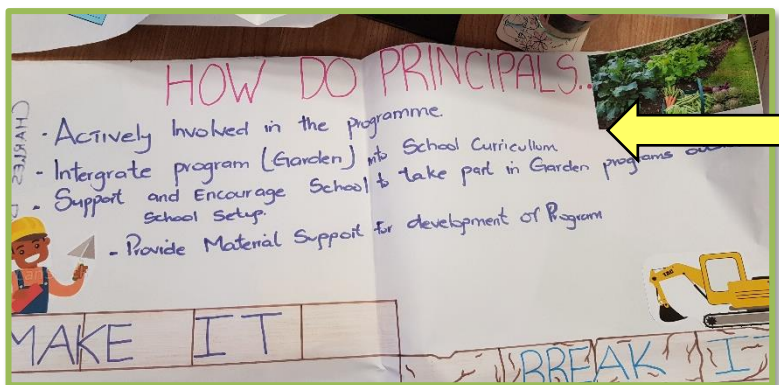 HOW DO PRINCIPALS..
- Actively Involved in the programme.
- Intergrate program (Garden) into School Curricullum.
- Support and Encourage School to take part in Garden programs
School Setup.
- Provide Material Support for development of Program
CHARLES
MAKE IT
BREAK IT